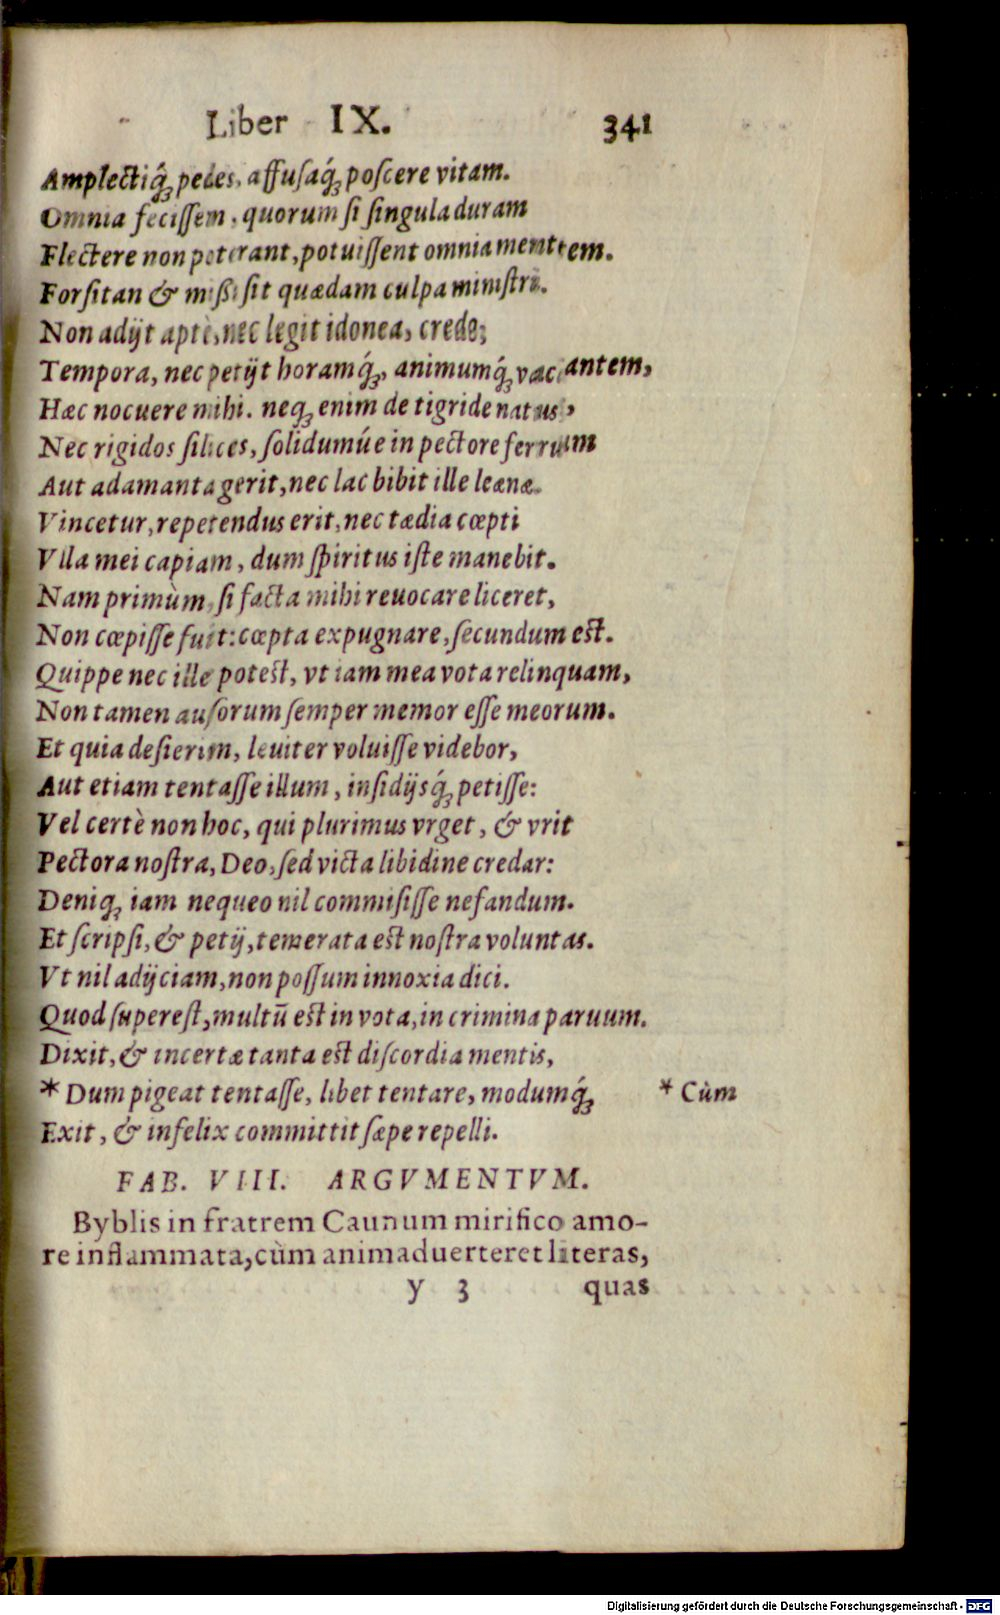 Liber IX. 341
Amplectiq́ꝫ pedes, affuſaq́ꝫ poſcere vitam.
Omnia feciſſem, quorum ſi ſingula duram
Flectere non poterant, potuiſſent omnia menttem.
Forſitan & mißi ſit quædam culpa miniſtri.
Non adijt aptè, nec legit idonea, credo;
Tempora, nec petijt horamq́ꝫ, animumq́ꝫ vacantem,
Hæc nocuere mihi. neqꝫ enim de tigride natus,
Nec rigidos ſilices, ſolidumúe in pectore ferrum
Aut adamanta gerit, nec lac bibit ille leænæ.
Vincetur, repetendus erit, nec tædia cœpti
Vlla mei capiam, dum ſpiritus iſte manebit.
Nam primùm, ſi facta mihi reuocare liceret,
Non cœpiſſe fuit: cœpta expugnare, ſecundum est.
Quippe nec ille potest, vt iam mea vota relinquam,
Non tamen auſorum ſemper memor eſſe meorum.
Et quia deſierim, leuiter voluiſſe videbor,
Aut etiam tentaſſe illum, inſidijsq́ꝫ petiſſe:
Vel certè non hoc, qui plurimus vrget, & vrit
Pectora noſtra, Deo, ſed victa libidine credar:
Deniqꝫ iam nequeo nil commiſiſſe nefandum.
Et ſcripſi, & petij, temerata est noſtra voluntas.
Vt nil adijciam, non poſſum innoxia dici.
Quod ſupereſt, multū est in vota, in crimina paruum.
Dixit, & incertæ tanta est diſcordia mentis,
* Dum pigeat tentaſſe, libet tentare, modumq́ꝫ * Cùm
Exit, & infelix committit ſæpe repelli.
FAB. VIII. ARGVMENTVM.
Byblis in fratrem Caunum mirifico amo-
re inflammata, cùm animaduerteret literas,
y 3 quas
Digitalisierung gefördert durch die Deutsche Forschungsgemeinschaft - DFG